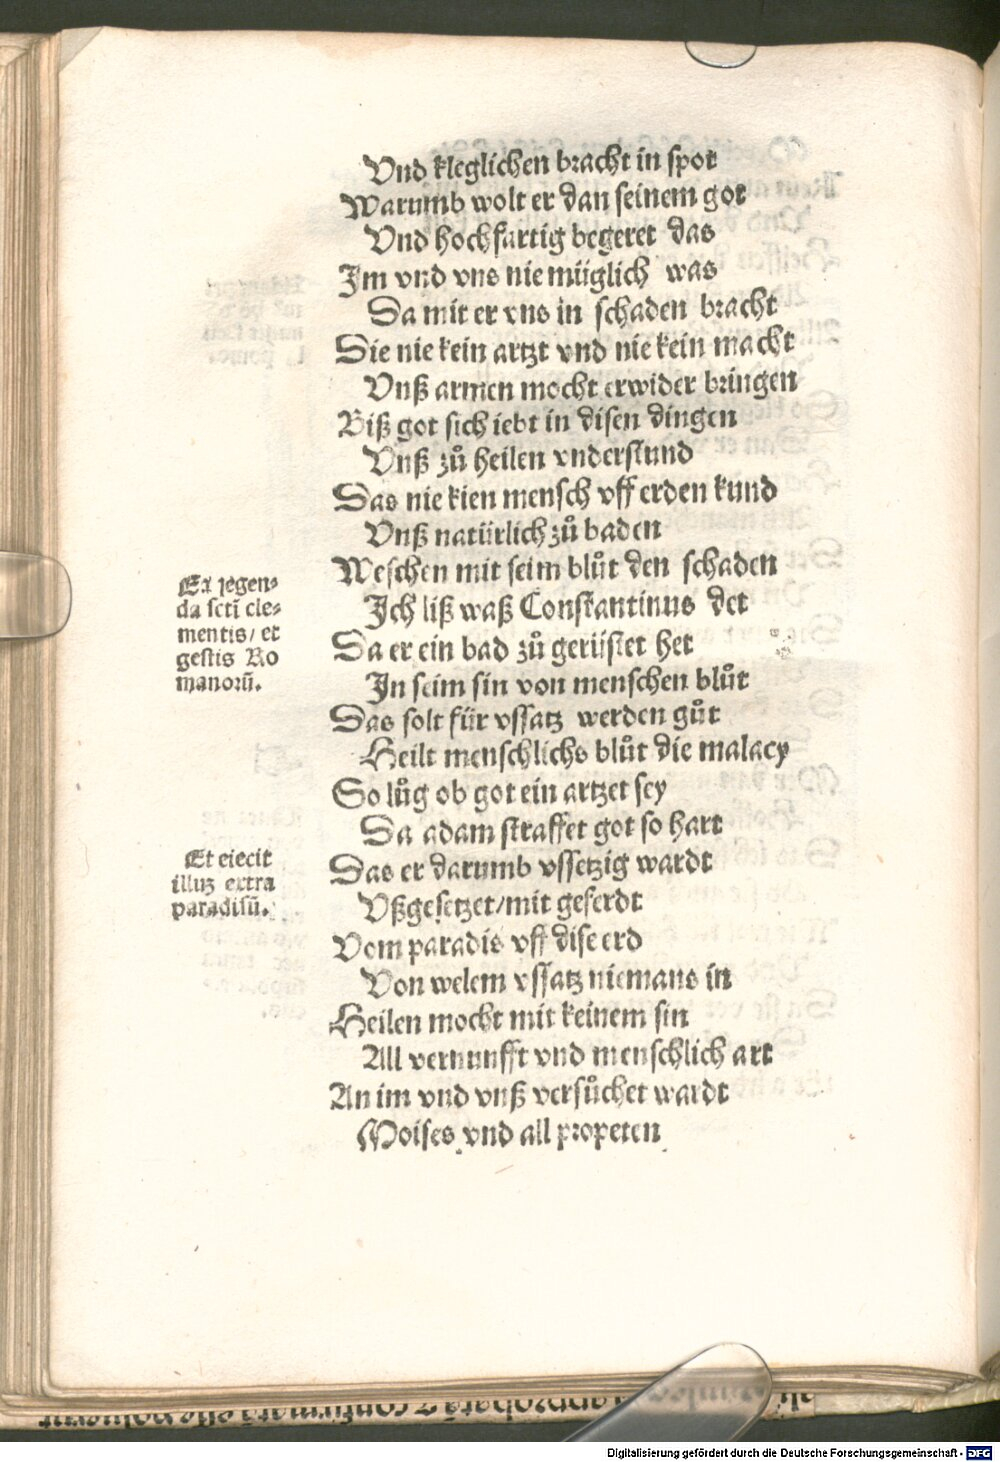 Vnd kleglichen bracht in spot
Warumb wolt er dan seinem got
Vnd hochfartig begeret das
Im vnd vns nie müglich was
Da mit er vns in schaden bracht
Die nie kein artzt vnd nie kein macht
Vnß armen mocht erwider bringen
Biß got sich iebt in disen dingen
Vnß zů heilen vnderstund
Das nie kien mensch vff erden kund
Vnß natürlich zů baden
Weschen mit seim blůt den schaden
Ex legen-
da scti cle-
mentis/ et
gestis Ro
manorū.
Ich liß waß Constantinus det
Da er ein bad zů gerüstet het
In seim sin von menschen blůt
Das solt für vssatz werden gůt
Heilt menschlichs blůt die malacy
So lůg ob got ein artzet sey
Da adam straffet got so hart
Et eiecit
illuz extra
paradisū.
Das er darumb vssetzig wardt
Vßgesetzet/mit geferdt
Vom paradis vff dise erd
Von welem vssatz niemans in
Heilen mocht mit keinem sin
All vernunfft vnd menschlich art
An im vnd vnß versůchet wardt
Moises vnd all propeten
Digitalisierung gefördert durch die Deutsche Forschungsgemeinschaft - DFG